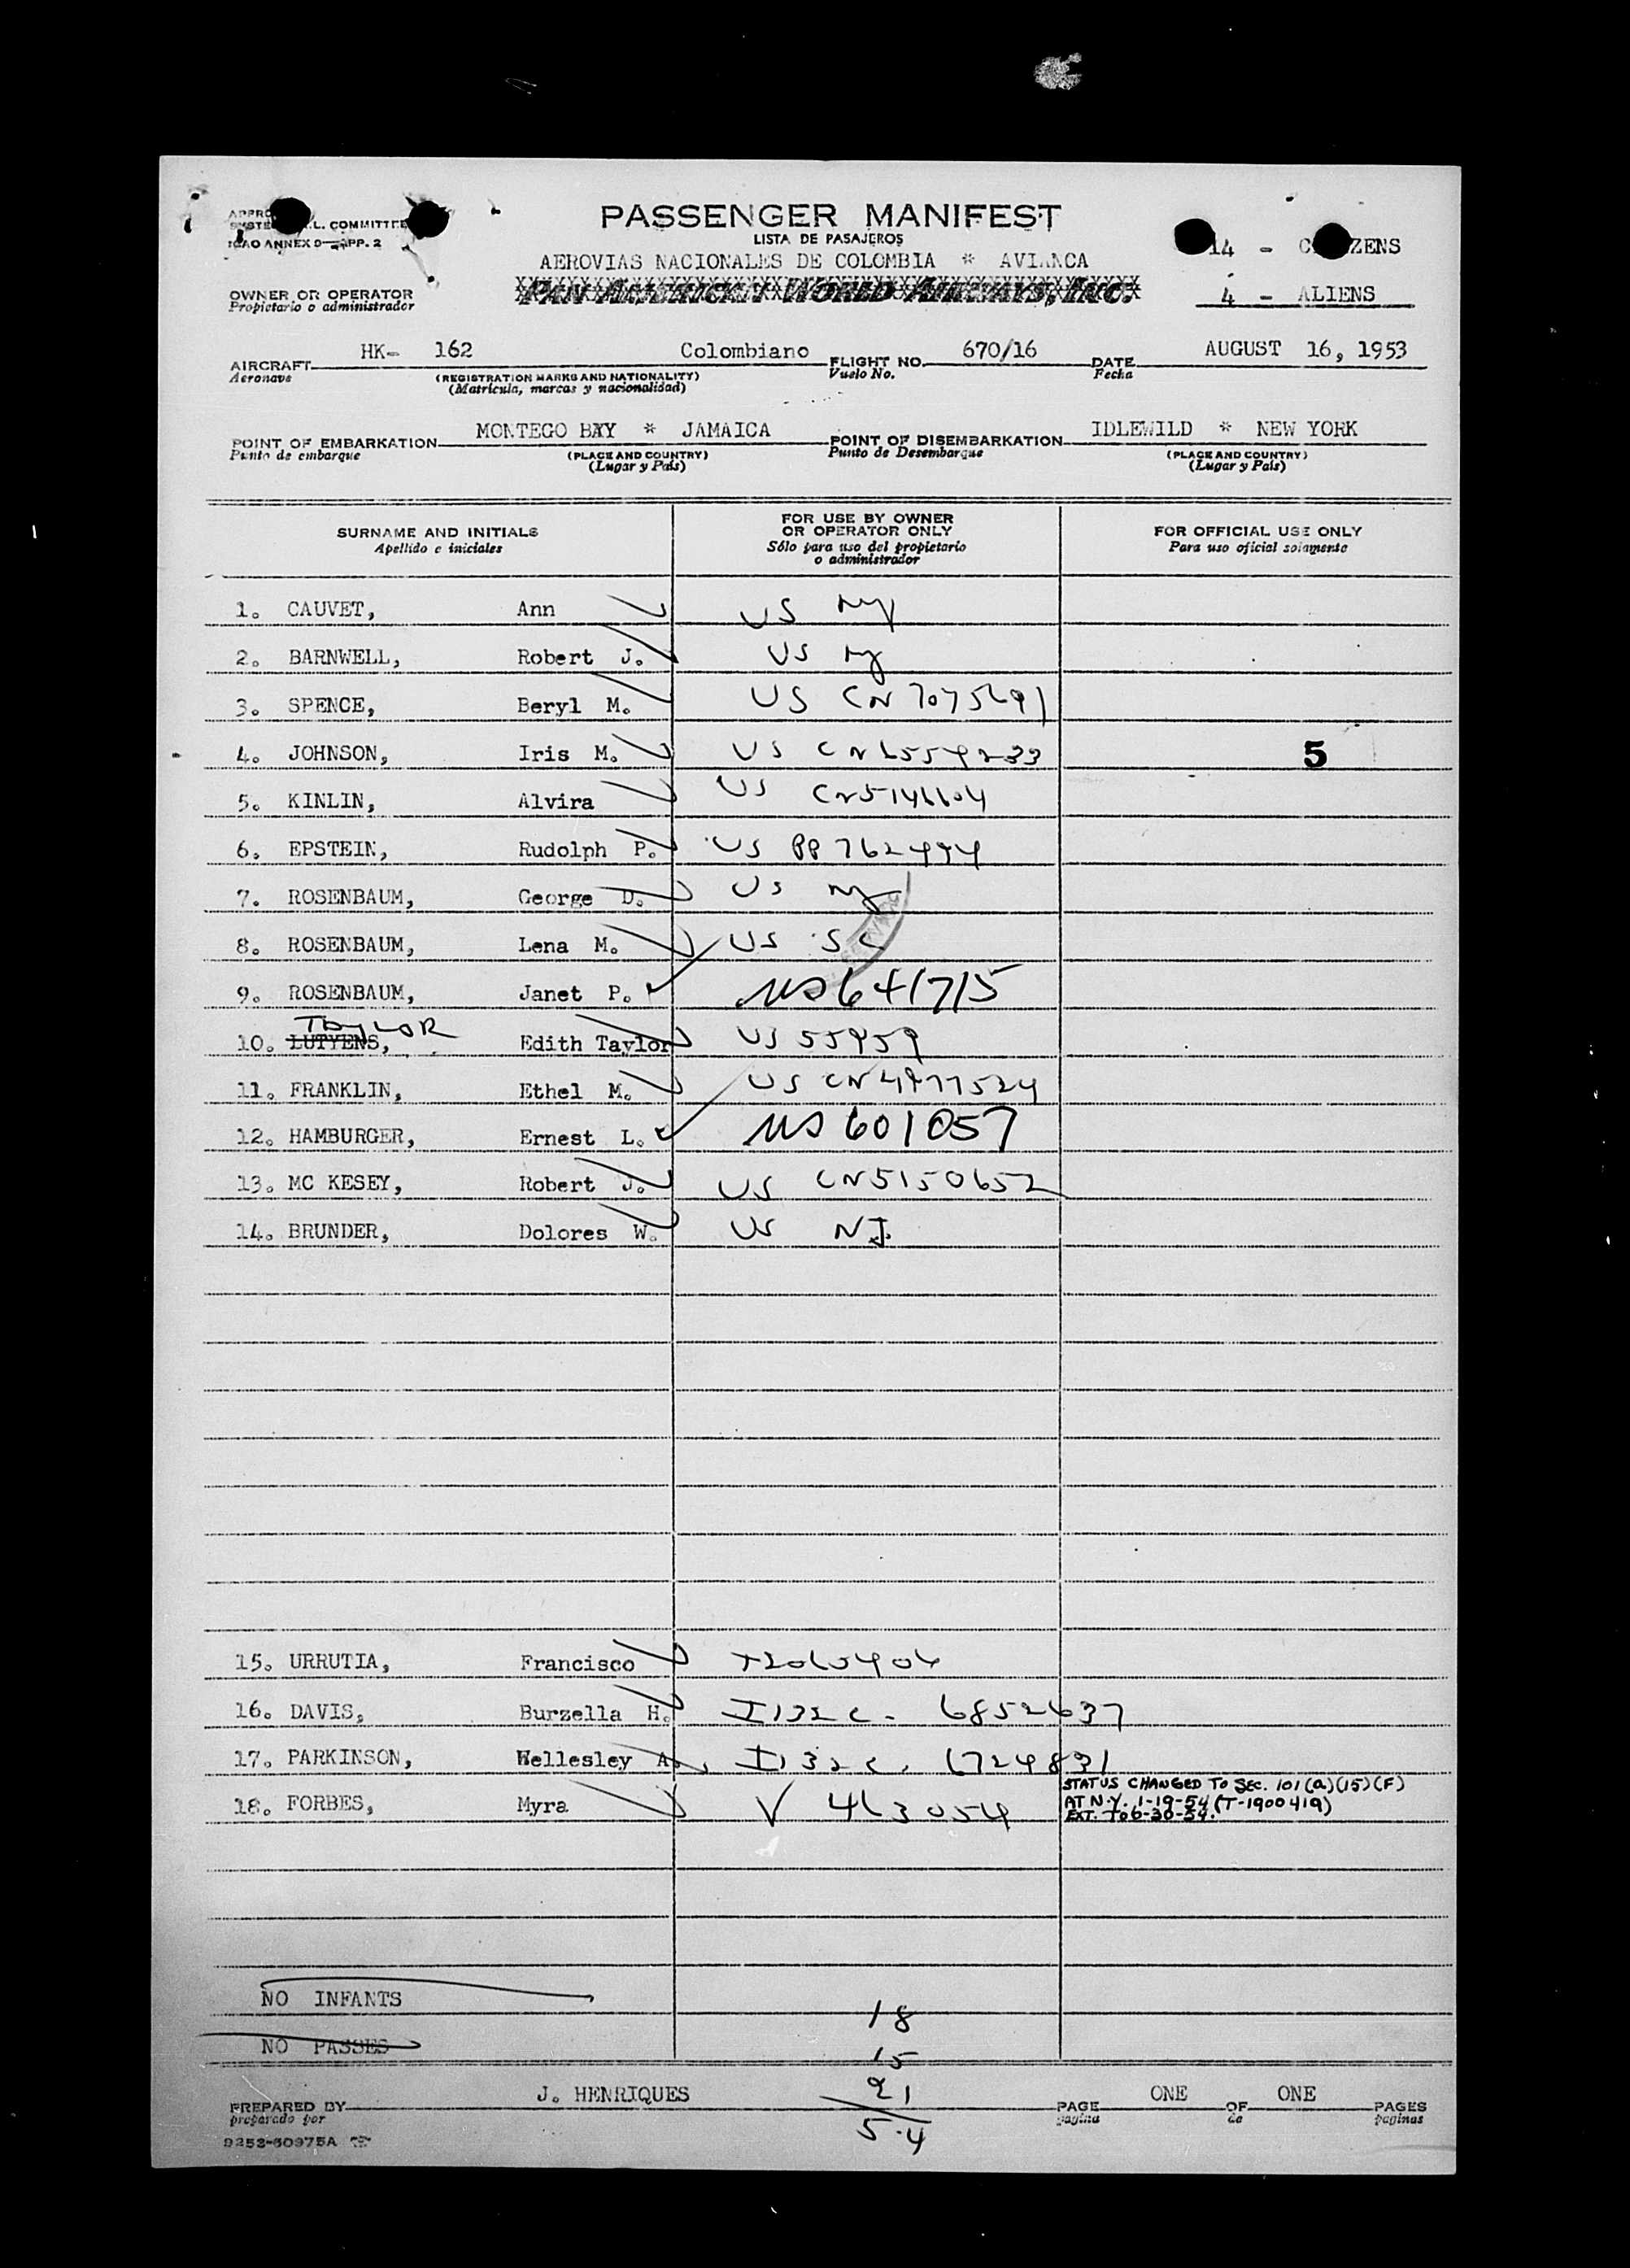 PASSENGER MANIFEST
LISTA DE PASAJEROS
L. COMMITTEE
ICAO ANNEX 9—APP. 2
AEROVIAS NACIONALES DE COLOMBIA * AVIANCA
PAN AMERICAN WORLD AIRWAYS, INC.
14 - C ZENS
4 - ALIENS
OWNER OR OPERATOR
Propietario o administrador
AIRCRAFT HK- 162 Colombiano FLIGHT NO. 670/16 DATE AUGUST 16, 1953
Aeronave (REGISTRATION MARKS AND NATIONALITY) Vuelo No. Fecha
(Matrícula, marcas y nacionalidad)
POINT OF EMBARKATION MONTEGO BAY * JAMAICA POINT OF DISEMBARKATION IDLEWILD * NEW YORK
Punto de embarque (PLACE AND COUNTRY) Punto de Desembarque (PLACE AND COUNTRY)
(Lugar y País) (Lugar y País)
SURNAME AND INITIALS FOR USE BY OWNER OR OPERATOR ONLY FOR OFFICIAL USE ONLY
Apellido e iniciales Sólo para uso del propietario o administrador Para uso oficial solamente
1. CAUVET, Ann US NY
2. BARNWELL, Robert J. US NY
3. SPENCE, Beryl M. US CN 7075691
4. JOHNSON, Iris M. US CN 6559233 5
5. KINLIN, Alvira US CN5146604
6. EPSTEIN, Rudolph P. US PP 762494
7. ROSENBAUM, George D. US NY
8. ROSENBAUM, Lena M. US SC
9. ROSENBAUM, Janet P. US 641715
TAYLOR
10. LUTYENS, Edith Taylor US 55959
11. FRANKLIN, Ethel M. US CN 4977524
12. HAMBURGER, Ernest L. US 601057
13. MC KESEY, Robert J. US CN5150652
14. BRUNDER, Dolores W. US NJ.
15. URRUTIA, Francisco
16. DAVIS, Burzella H. I132C. 6852637
17. PARKINSON, Wellesley A. I132C. 6724891
STATUS CHANGED TO SEC. 101(a)(15)(F)
18. FORBES, Myra V 463054 AT N.Y. 1-19-54 (T-1900419)
EXT. TO 6-30-54.
NO INFANTS
18
NO PASSES
15
21
5.4
PREPARED BY J. HENRIQUES PAGE ONE OF ONE PAGES
preparado por pagina de paginas
9253-60975A